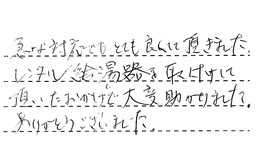 急な対応でもとても良くして頂きました。
レンタル給湯器を取付けして
頂いたおかげで大変助かりました。
ありがとうございました。